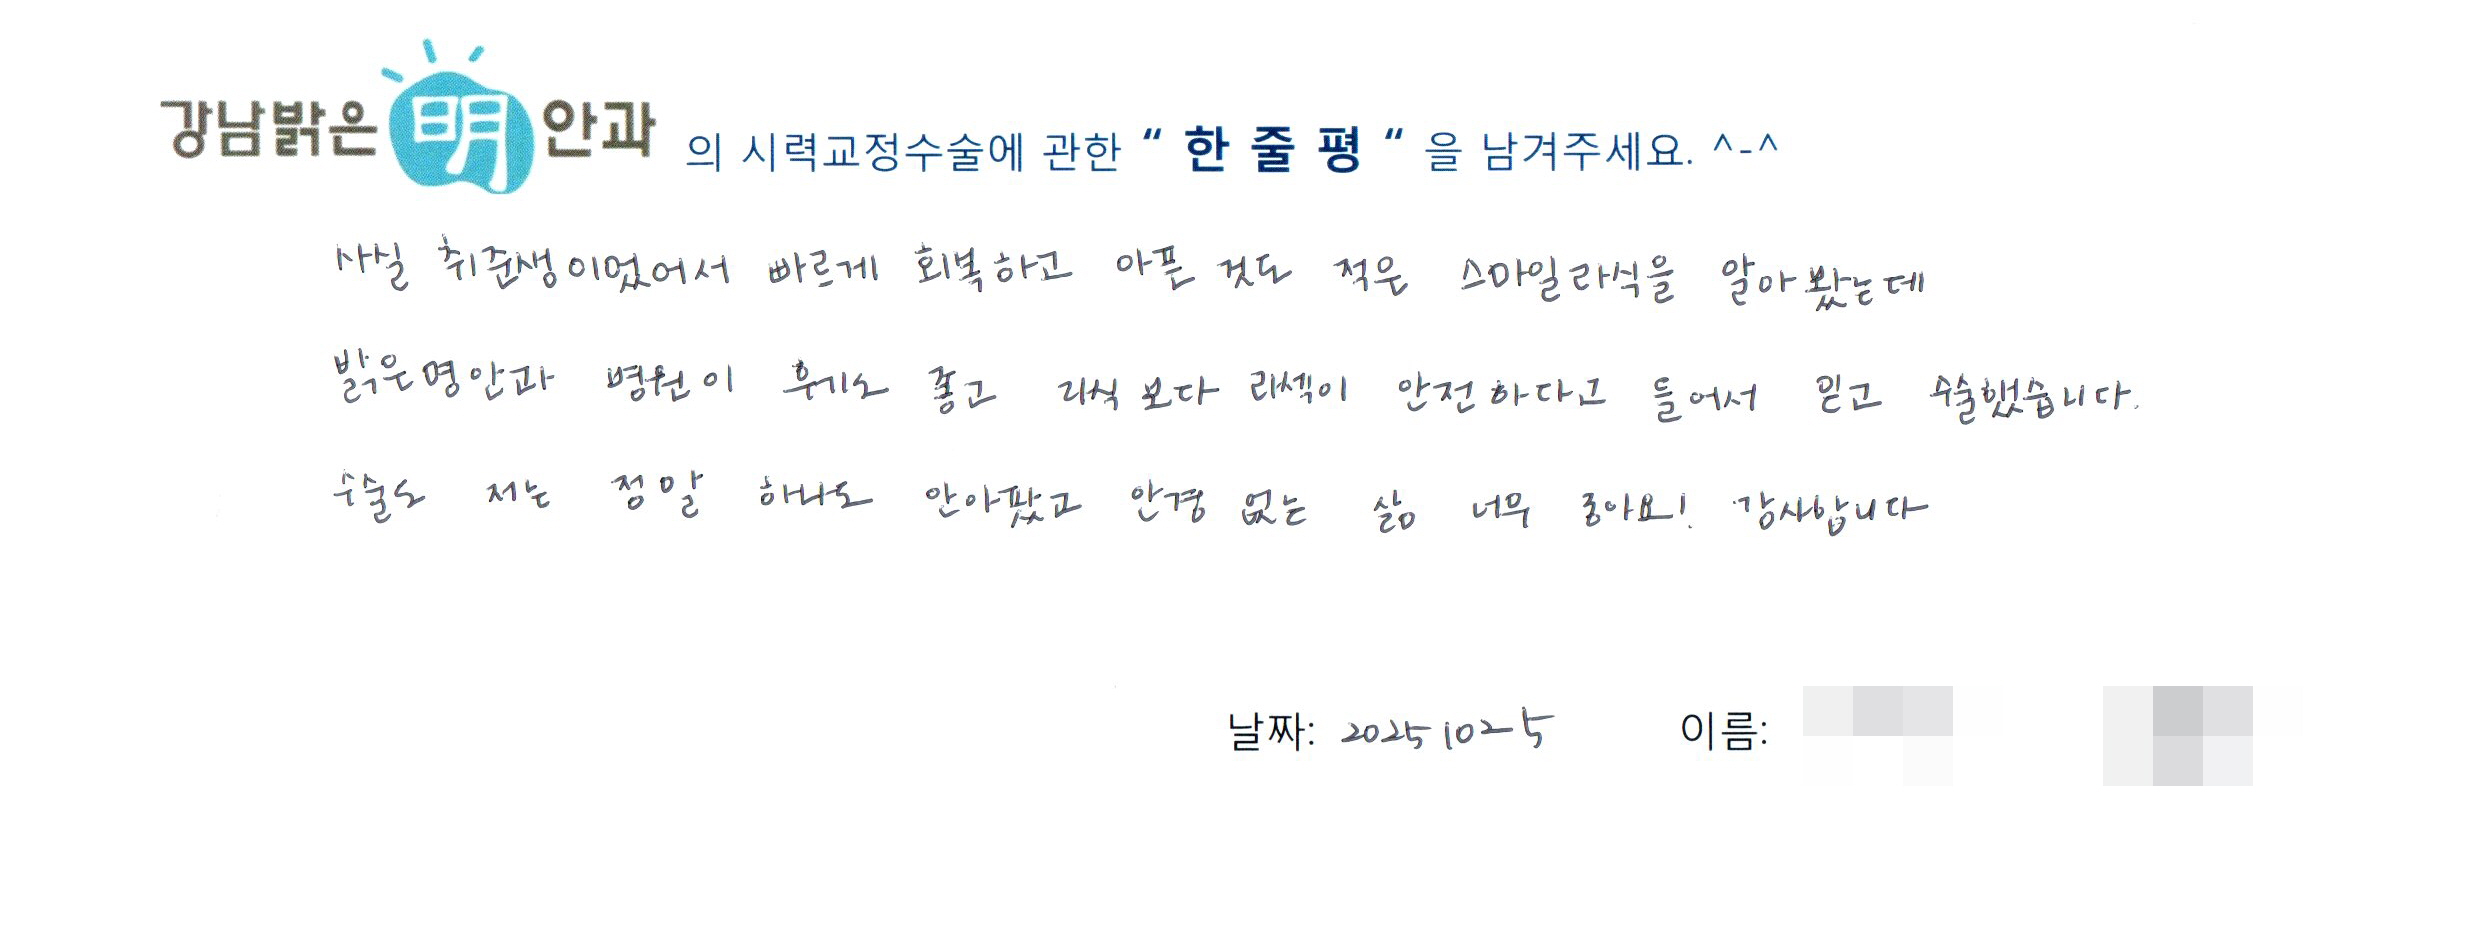 강남밝은明안과 의 시력교정수술에 관한 “ 한 줄 평 “ 을 남겨주세요. ^-^
사실 취준생이었어서 빠르게 회복하고 아픈 것도 적은 스마일라식을 알아봤는데
밝은명안과 병원이 후기도 좋고 라식보다 라섹이 안전하다고 들어서 믿고 수술했습니다.
수술도 저는 정말 하나도 안아팠고 안경 없는 삶 너무 좋아요! 감사합니다
날짜: 20251025 이름: